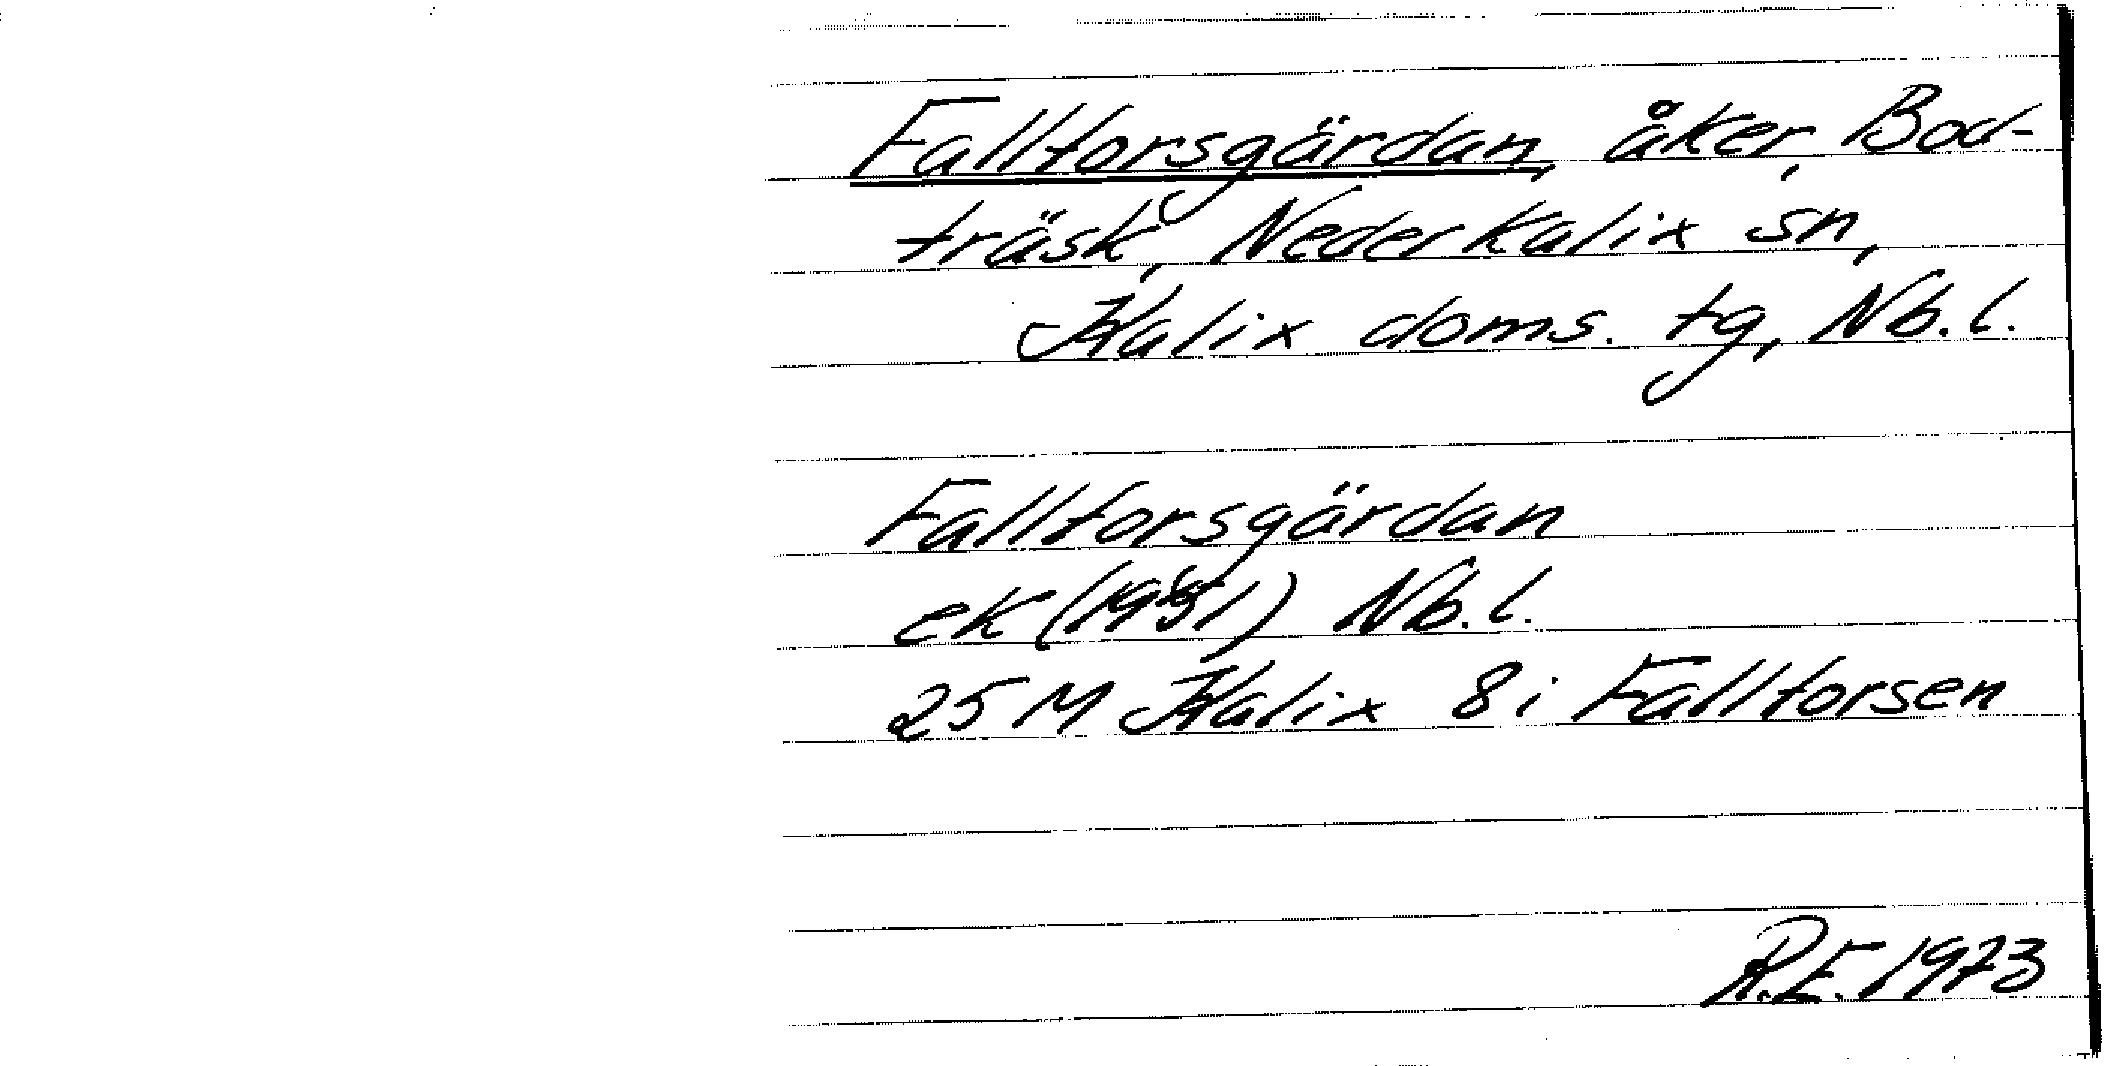 Fallforsgärdan, åker, Bod-
träsk, Nederkalix sn,
Kalix doms. tg, Nb. l.
Fallforsgärdan
ek (1951) Nb. l.
25 M Kalix 8i Fallforsen
R.E. 1973